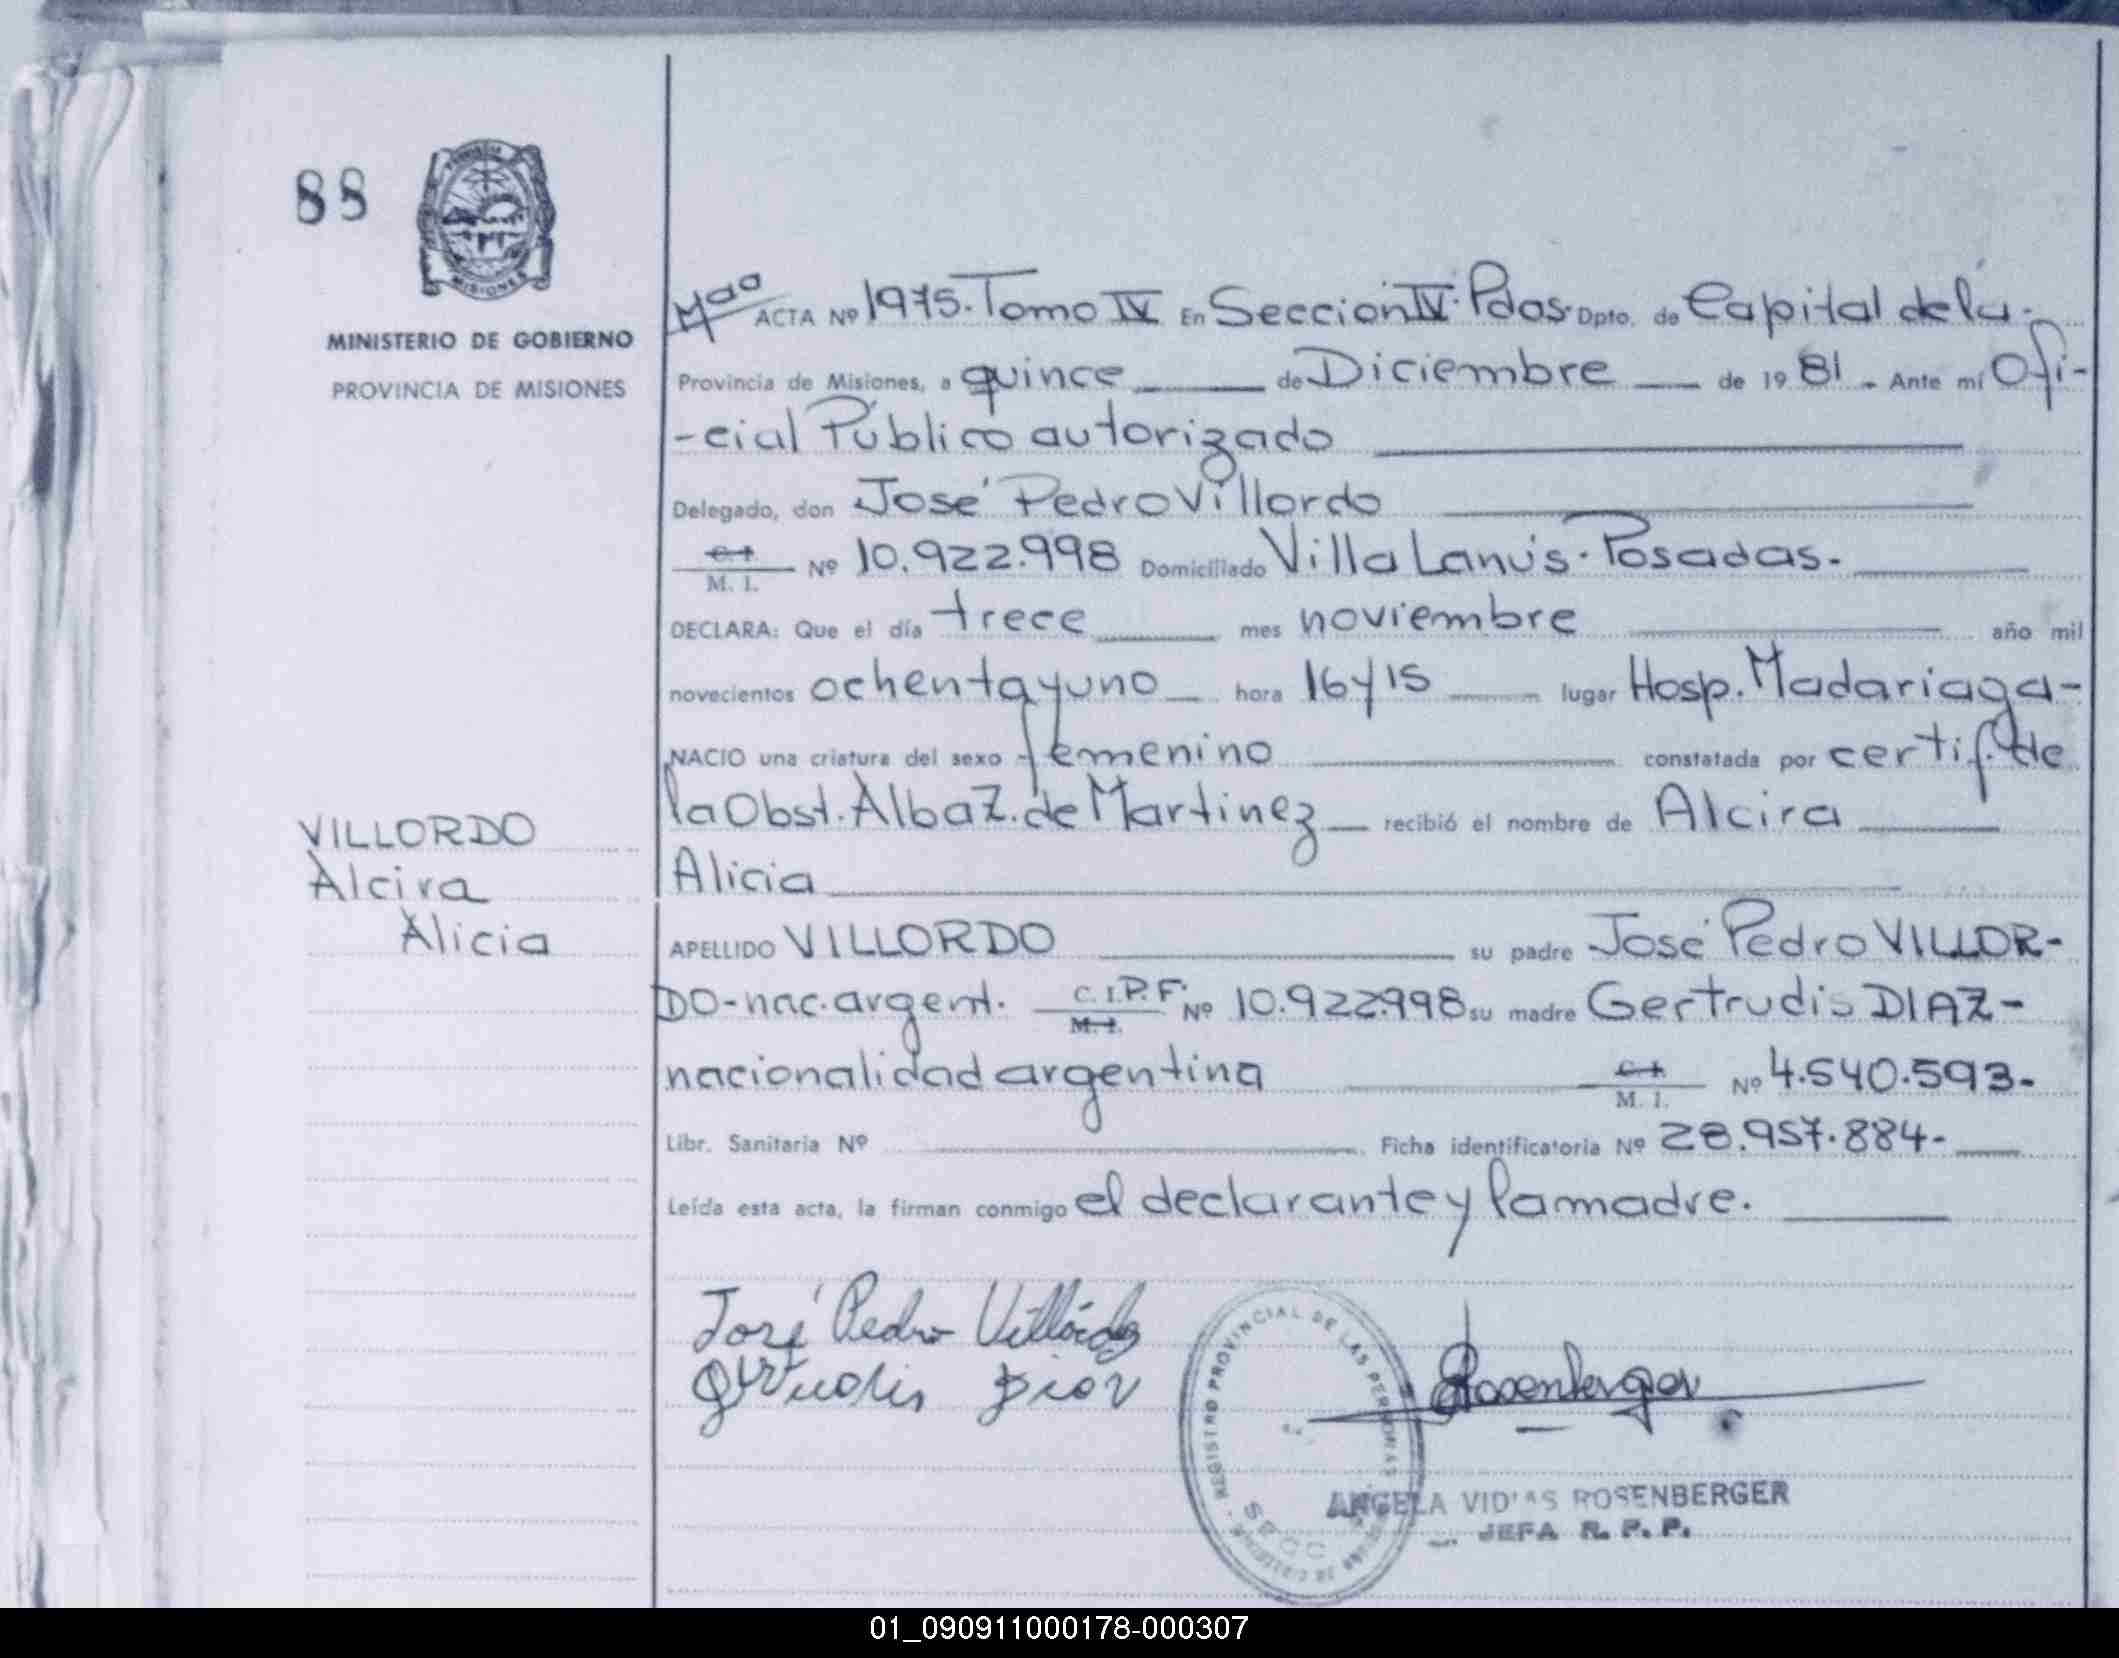 88
PROVINCIA
MISIONES
MINISTERIO DE GOBIERNO
PROVINCIA DE MISIONES
VILLORDO
Alcira
Alicia
ACTA Nº 1975. Tomo IV En Sección IV. Pdas. Dpto. de Capital de la.
Provincia de Misiones, a quince de Diciembre de 19 81. Ante mí Ofi-
-cial Público autorizado
Delegado, don José Pedro Villordo
C. I. M. I. Nº 10.922.998 Domiciliado Villa Lanús. Posadas.
DECLARA: Que el día trece mes noviembre año mil
novecientos ochenta y uno hora 16 y 15 lugar Hosp. Madariaga-
NACIO una criatura del sexo femenino constatada por certif. de
la Obst. Alba Z. de Martinez recibió el nombre de Alcira
Alicia
APELLIDO VILLORDO su padre José Pedro VILLOR-
DO-nac. argent. C. I. P.F. M. I. Nº 10.922.998 su madre Gertrudis DIAZ-
nacionalidad argentina C. I. M. I. Nº 4.540.593-
Libr. Sanitaria Nº Ficha identificatoria Nº 28.957.884-
Leída esta acta, la firman conmigo el declarante y la madre.
José Pedro Villordo
Gertrudis Diaz
Rosenberger
REGISTRO PROVINCIAL DE LAS PERSONAS
ANGELA VIDAS ROSENBERGER
JEFA R. P. P.
01_090911000178-000307